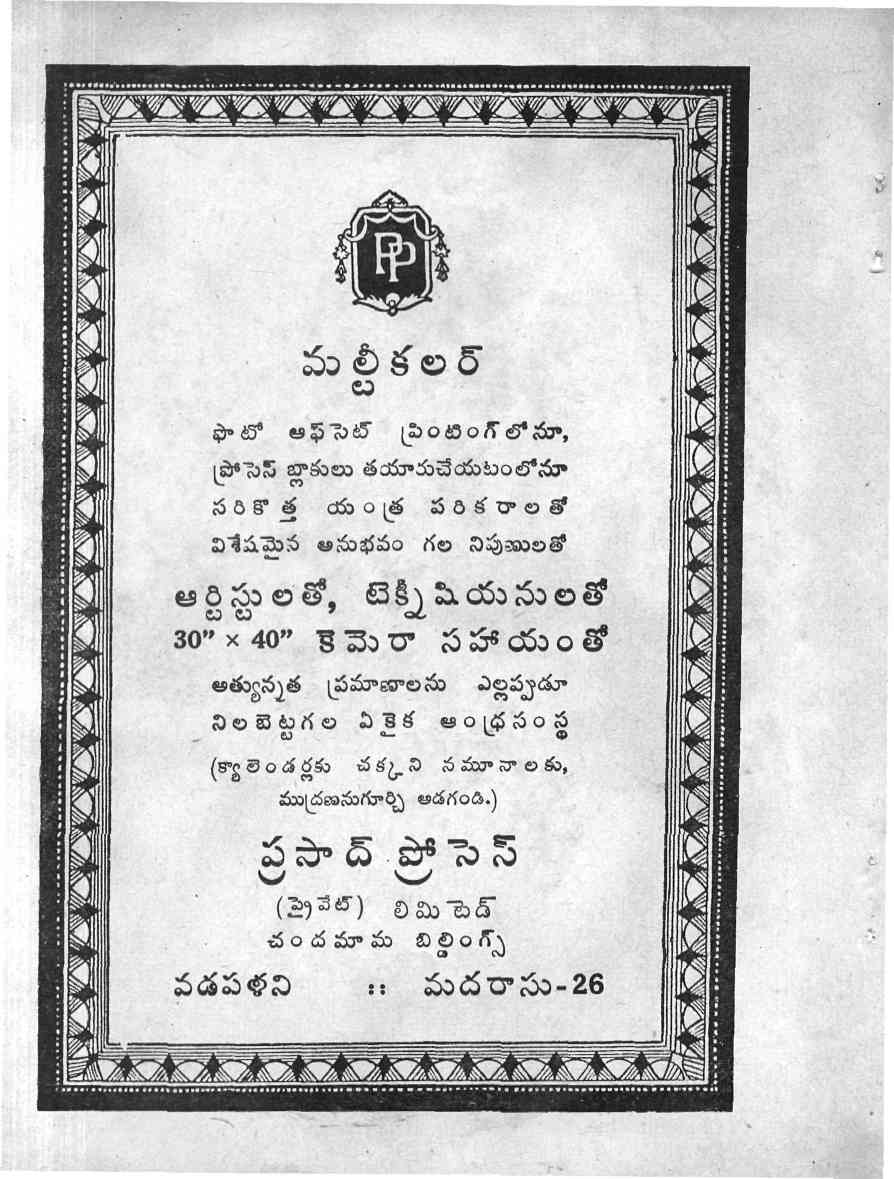 PP
మల్టీకలర్
ఫొటో ఆఫ్‌సెట్ ప్రింటింగ్‌లోనూ,
ప్రోసెస్ బ్లాకులు తయారుచేయటంలోనూ
సరికొత్త యంత్ర పరికరాలతో
విశేషమైన అనుభవం గల నిపుణులతో
ఆర్టిస్టులతో, టెక్నీషియనులతో
30” × 40” కెమెరా సహాయంతో
అత్యున్నత ప్రమాణాలను ఎల్లప్పుడూ
నిలబెట్టగల ఏకైక ఆంధ్రసంస్థ
(క్యాలెండర్లకు చక్కని నమూనాలకు,
ముద్రణనుగూర్చి అడగండి.)
ప్రసాద్ ప్రోసెస్
(ప్రైవేట్) లిమిటెడ్
చందమామ బిల్డింగ్స్
వడపళని :: మదరాసు-26